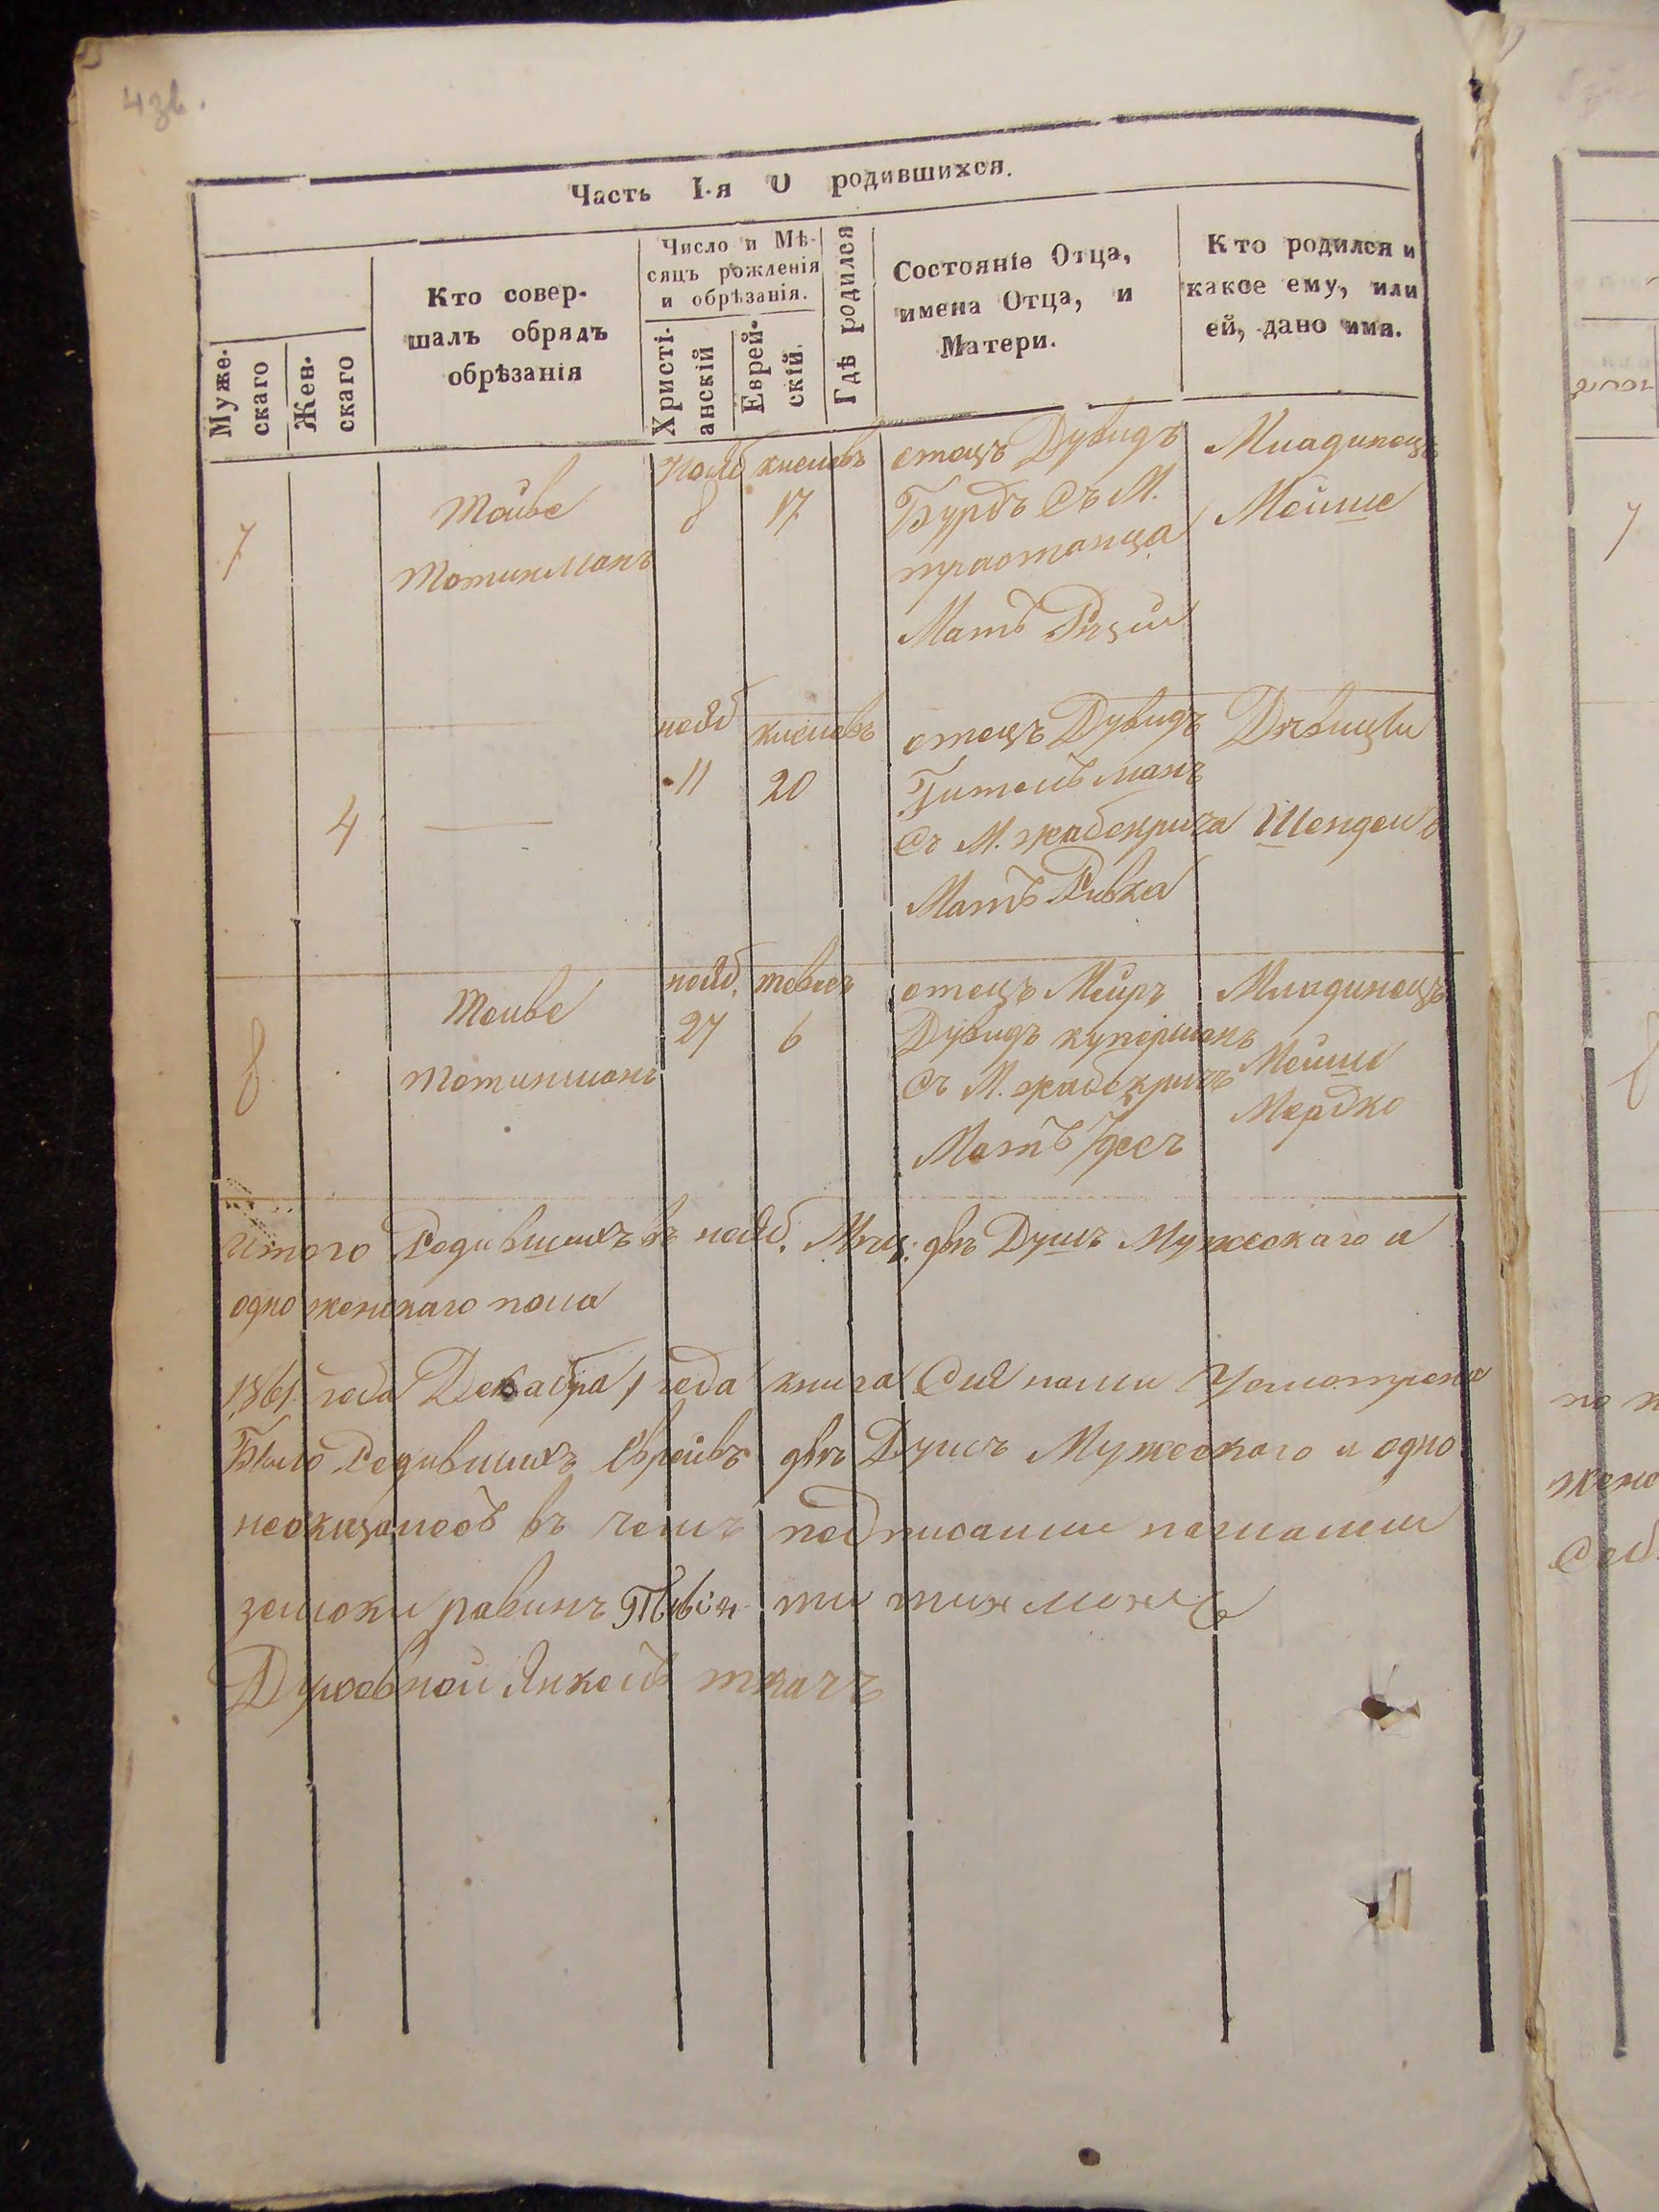 4 зв.
Часть I-я О родившихся.
Муже-
скаго
Жен-
скаго
Кто совер-
шалъ обрядъ
обрѣзанія
Число и Мѣ-
сяцъ рожденія
и обрѣзанія.
Христі-
анскій
Еврей-
скій.
Гдѣ родился
Состояніе Отца,
имена Отца, и
Матери.
Кто родился и
какое ему, или
ей, дано имя.
7
Тойве
Тотинманъ
Нояб
8
кислевъ
17
отецъ Дувидъ
Бурдъ Съ М.
Мать
Младинецъ
Мойше
4
нояб
11
кислевъ
20
отецъ Дувидъ
Гительманъ
Съ М. жабокрича
Мать Ривка
Дѣвицы
Шендель
8
Тойве
Тотинманъ
нояб.
27
тевесъ
6
отецъ Мейръ
Дувидъ куперманъ
Съ М. жабокричъ
Мать
Младинецъ
Мойше
Мордко
Итого Родившихъ въ нояб. Мѣц. двѣ Душъ Мужескаго и
одно женскаго пола
1861 года Декабра 1 года книга Сия нами
Было Родившихъ Евреивъ двѣ Душъ Мужескаго и одно
въ чемъ подписами
равинъ
Духовной Янкель ткачъ
7
8